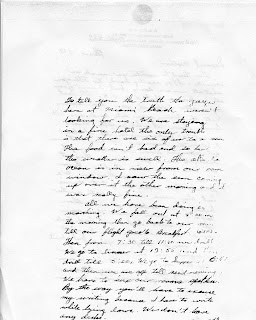 To tell you the truth the guys
here at Miami Beach weren't
looking for us. We are staying
in a fine hotel the only trouble
is that there are six of us to a room
The food isn't bad and so far
the weather is swell. The atlantic
ocean is in view from our room
window. I saw the sun come
up over it the other morning and it
was really fine.
All we have been doing is
marching. We fall out at in
the morning then go back to our room
till our flight goes to breakfast
Then from 7:30 till 11:30 we drill
We go to dinner at
drill till 5:00. We go to supper at
and then we are off till next morning
We have to keep our rooms spotless
By the way you will have to excuse
my writing because I have to write
while lying down. We don't have
any desks.